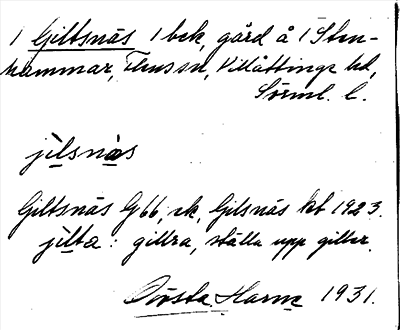 1 Giltsnäs 1 bck, gård å 1 Sten-
hammar, Flens sn, Villåttinge hd,
Sörml. l.
jìlsnäs
Giltsnäs G 66, ek, Gilsnäs kb 1923.
jìlta: gillra, ställa upp giller.
Gösta Harne 1931.